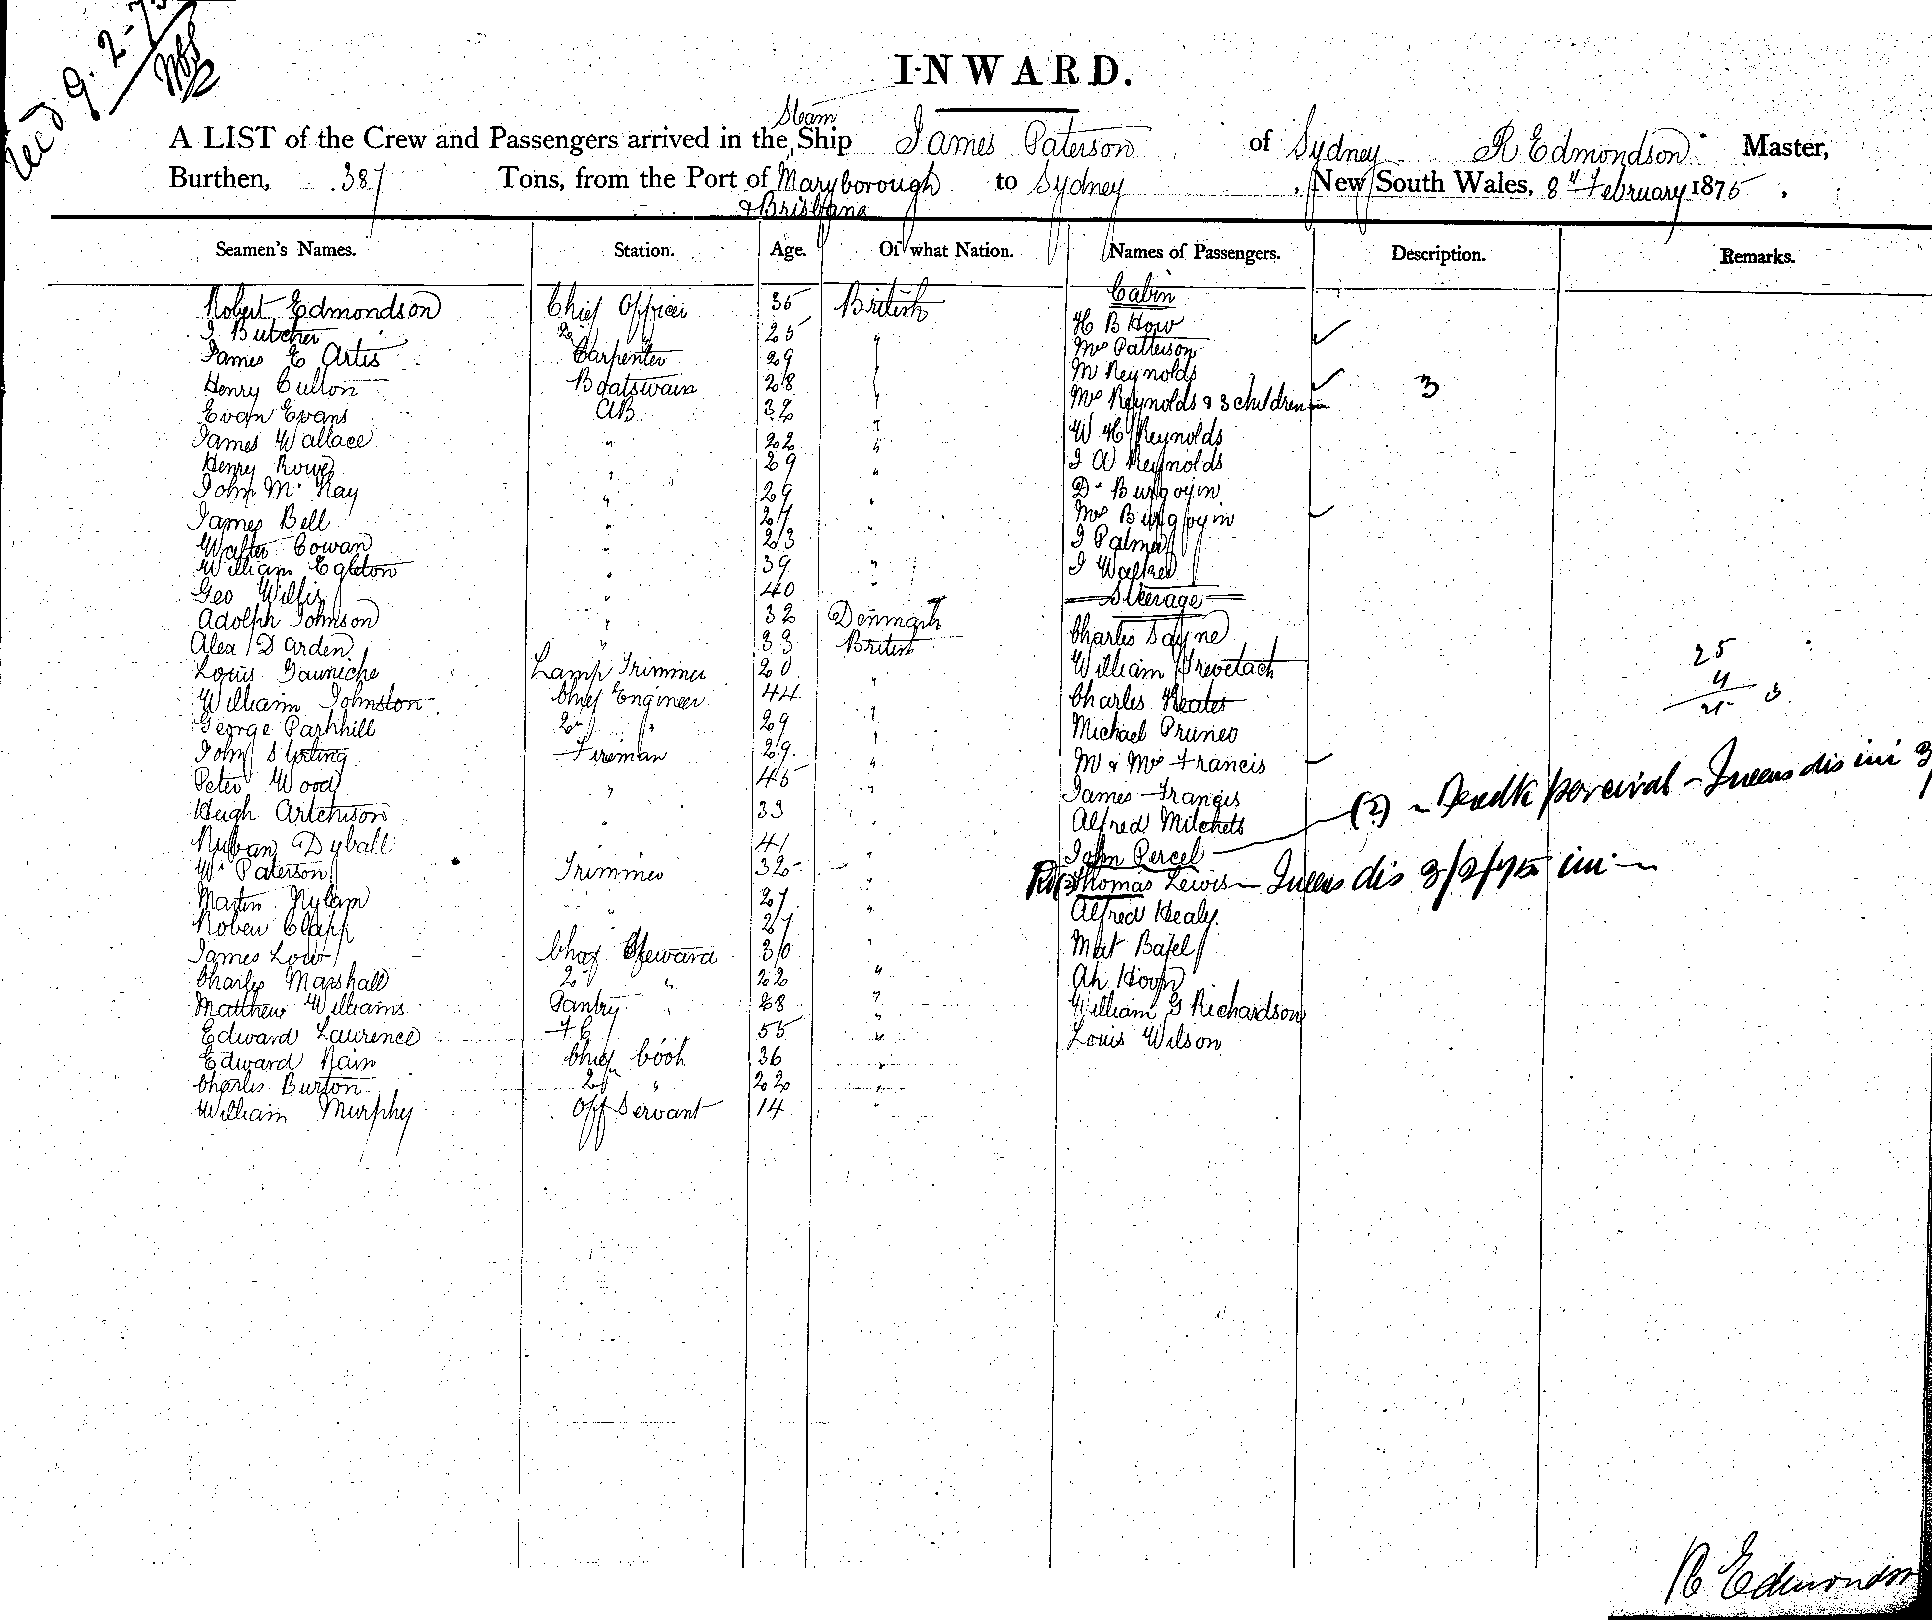 Recd 9.2.75
INWARD.
A LIST of the Crew and Passengers arrived in the Steam Ship James Paterson of Sydney R Edmondson Master,
Burthen, 387 Tons, from the Port of Maryborough to Sydney, New South Wales, 8th February 1875.
& Brisbane
Seamen's Names. Station. Age. Of what Nation. Names of Passengers. Description. Remarks.
Robert Edmondson Chief Officer 35 British Cabin
J Butcher 2d 25 " H B How
James E Artis Carpenter 29 " Mrs Patterson
Henry Culton Boatswain 28 " M Reynolds 3
Evan Evans AB 32 " Mrs Reynolds & 3 children
James Wallace " 22 " W H Reynolds
Henry Rowe " 29 " J A Reynolds
John Mc Kay " 29 " Dr Burgoyin
James Bell " 27 " Mrs Burgoyin
Walter Cowan " 23 " J Palmer
William Egldon " 39 " J Walker
Geo Willis " 40 " Steerage
Adolph Johnson " 32 Denmark Charles Sayne
Alex D Arden " 33 British William Trevetack
Louis Tauniche Lamp Trimmer 20 " Charles Keates
William Johnston Chief Engineer 44 " Michael Pruneo
George Parkhill 2d " 29 " M & Mrs Francis
John S Yorling Fireman 29 " James Francis
Peter Wood " 45 " Alfred Mitchels
Hugh Artchison " 33 " John Percel (2) Percival - Queens dis
Ruban Dyball 41 " Thomas Lewis - Queens dis 3/2/75
Wm Paterson Trimmer 32 " Alfred Healy
Martin Nylam " 27 " Mat Basel
Robert Clapp " 27 " Ah Hoon
James Low Chief Steward 30 " William G Richardson
Charles Marshall 2d " 22 " Louis Wilson
Matthew Williams Pantry " 28 "
Edward Laurence F C 55 "
Edward Nain Chief Cook 36 "
Charles Burton 2d " 22 "
William Murphy Off Servant 14 "
25
4
21 3
R Edmondson